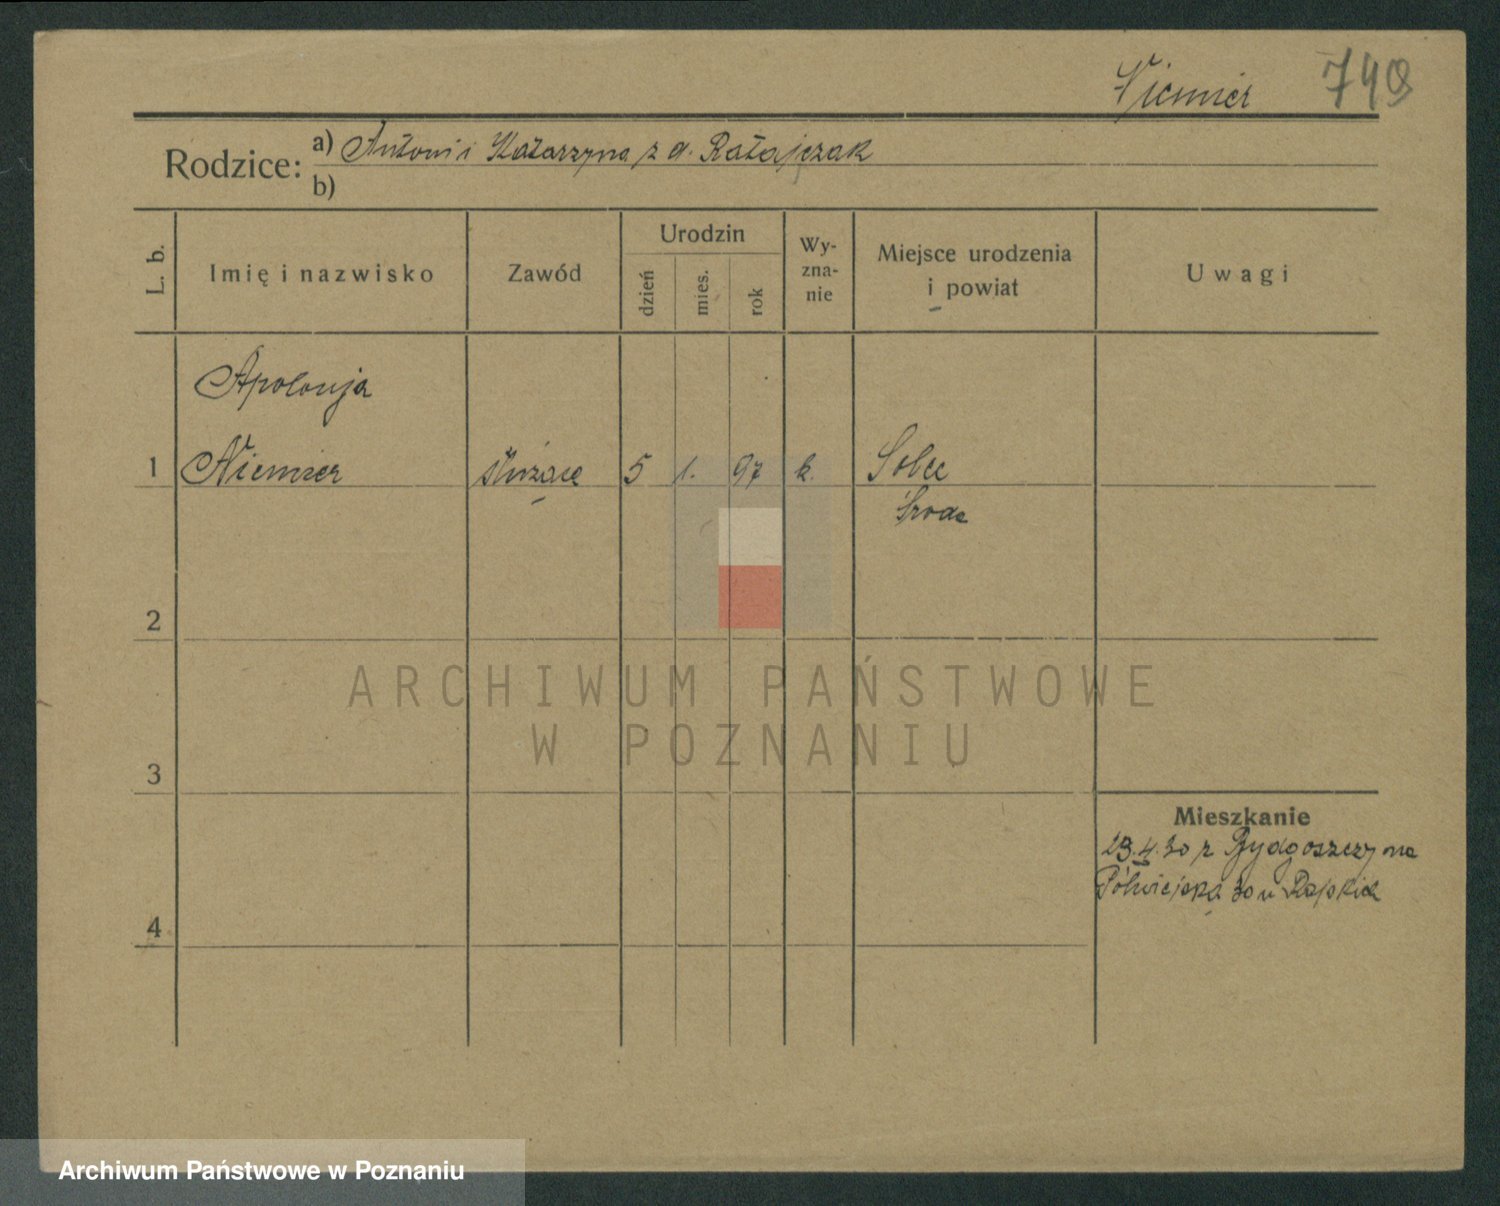 Niemier 749
Rodzice: a) Antoni i Katarzyna z d. Ratajczak
b)
L. b. Imię i nazwisko Zawód Urodzin dzień mies. rok Wyznanie Miejsce urodzenia i powiat Uwagi
Apolonja
1 Niemier służąca 5 1. 97 k. Solec
Środa
2
ARCHIWUM PAŃSTWOWE
W POZNANIU
3
Mieszkanie
23.4.30 z Bydgoszczy na
Półwiejska 30 u
4
Archiwum Państwowe w Poznaniu